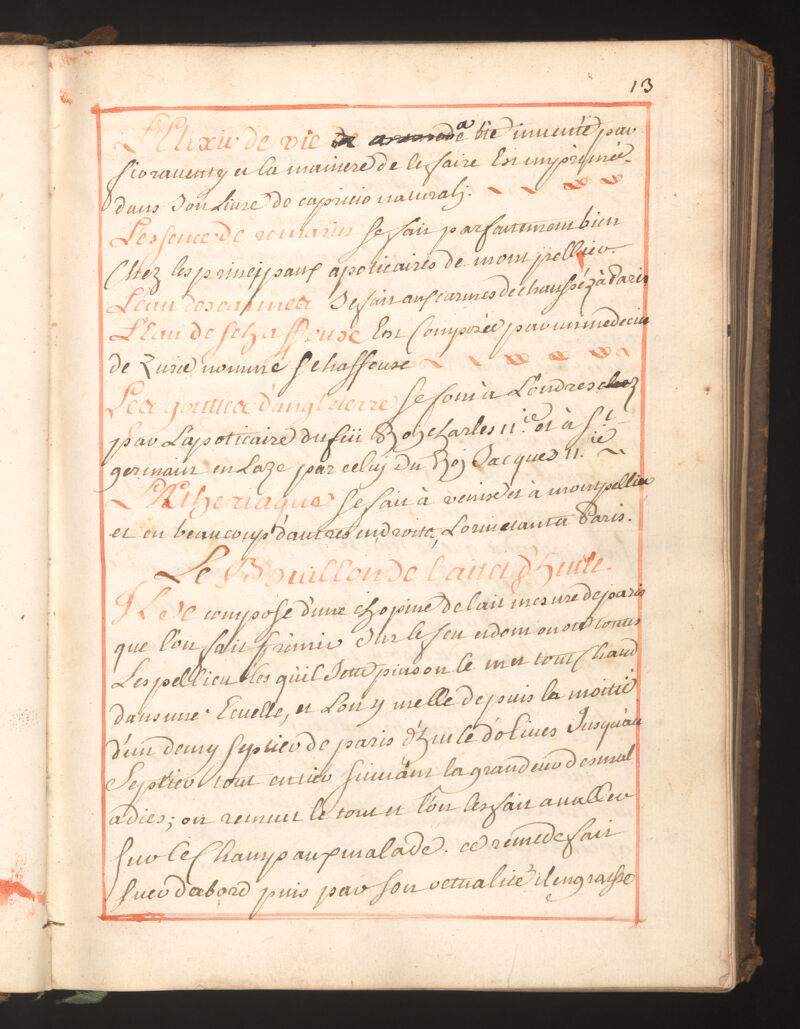 13
L'Elixir de vie a été inventé par
fioraventy et la maniere de le faire Est imprimée
dans Son Livre de capricio naturalj.
L'essence de romarin se fait parfaitement bien
Chez les principaux apoticaires de montpellier.
L'eau des carmes Se fait aux carmes dechaussez à Paris
L'Eau de schaffouse Est Composée par un medecin
de nommé schaffouse
Les gouttes d'angleterre se font à Londres
par Lapoticaire du feu Roy charles II.e et à S.t
germain en Laye par celuy du Roj Jacques II.ie
La theriaque se fait à venise et à montpellier
et en beaucoup d'autres endroits, Lorvietan à Paris.
Le Bouillon de lait et d'huile.
Il Se compose d'une chopine de lait mesure de paris
que l'on fait fremir Sur le feu et dont on ote toutes
Les pellicules quil Jette puis on le met tout Chaud
dans une Ecuelle, et Lon y melle depuis la moitié
d'un demy septier de paris d'huile d'olives Jusqu'au
Septier tout entier suivant la grandeur des mal
adies; on remue le tout et l'on les fait avaller
sur le Champ aux malade. ce remede fait
suer dabord puis par son il engraisse